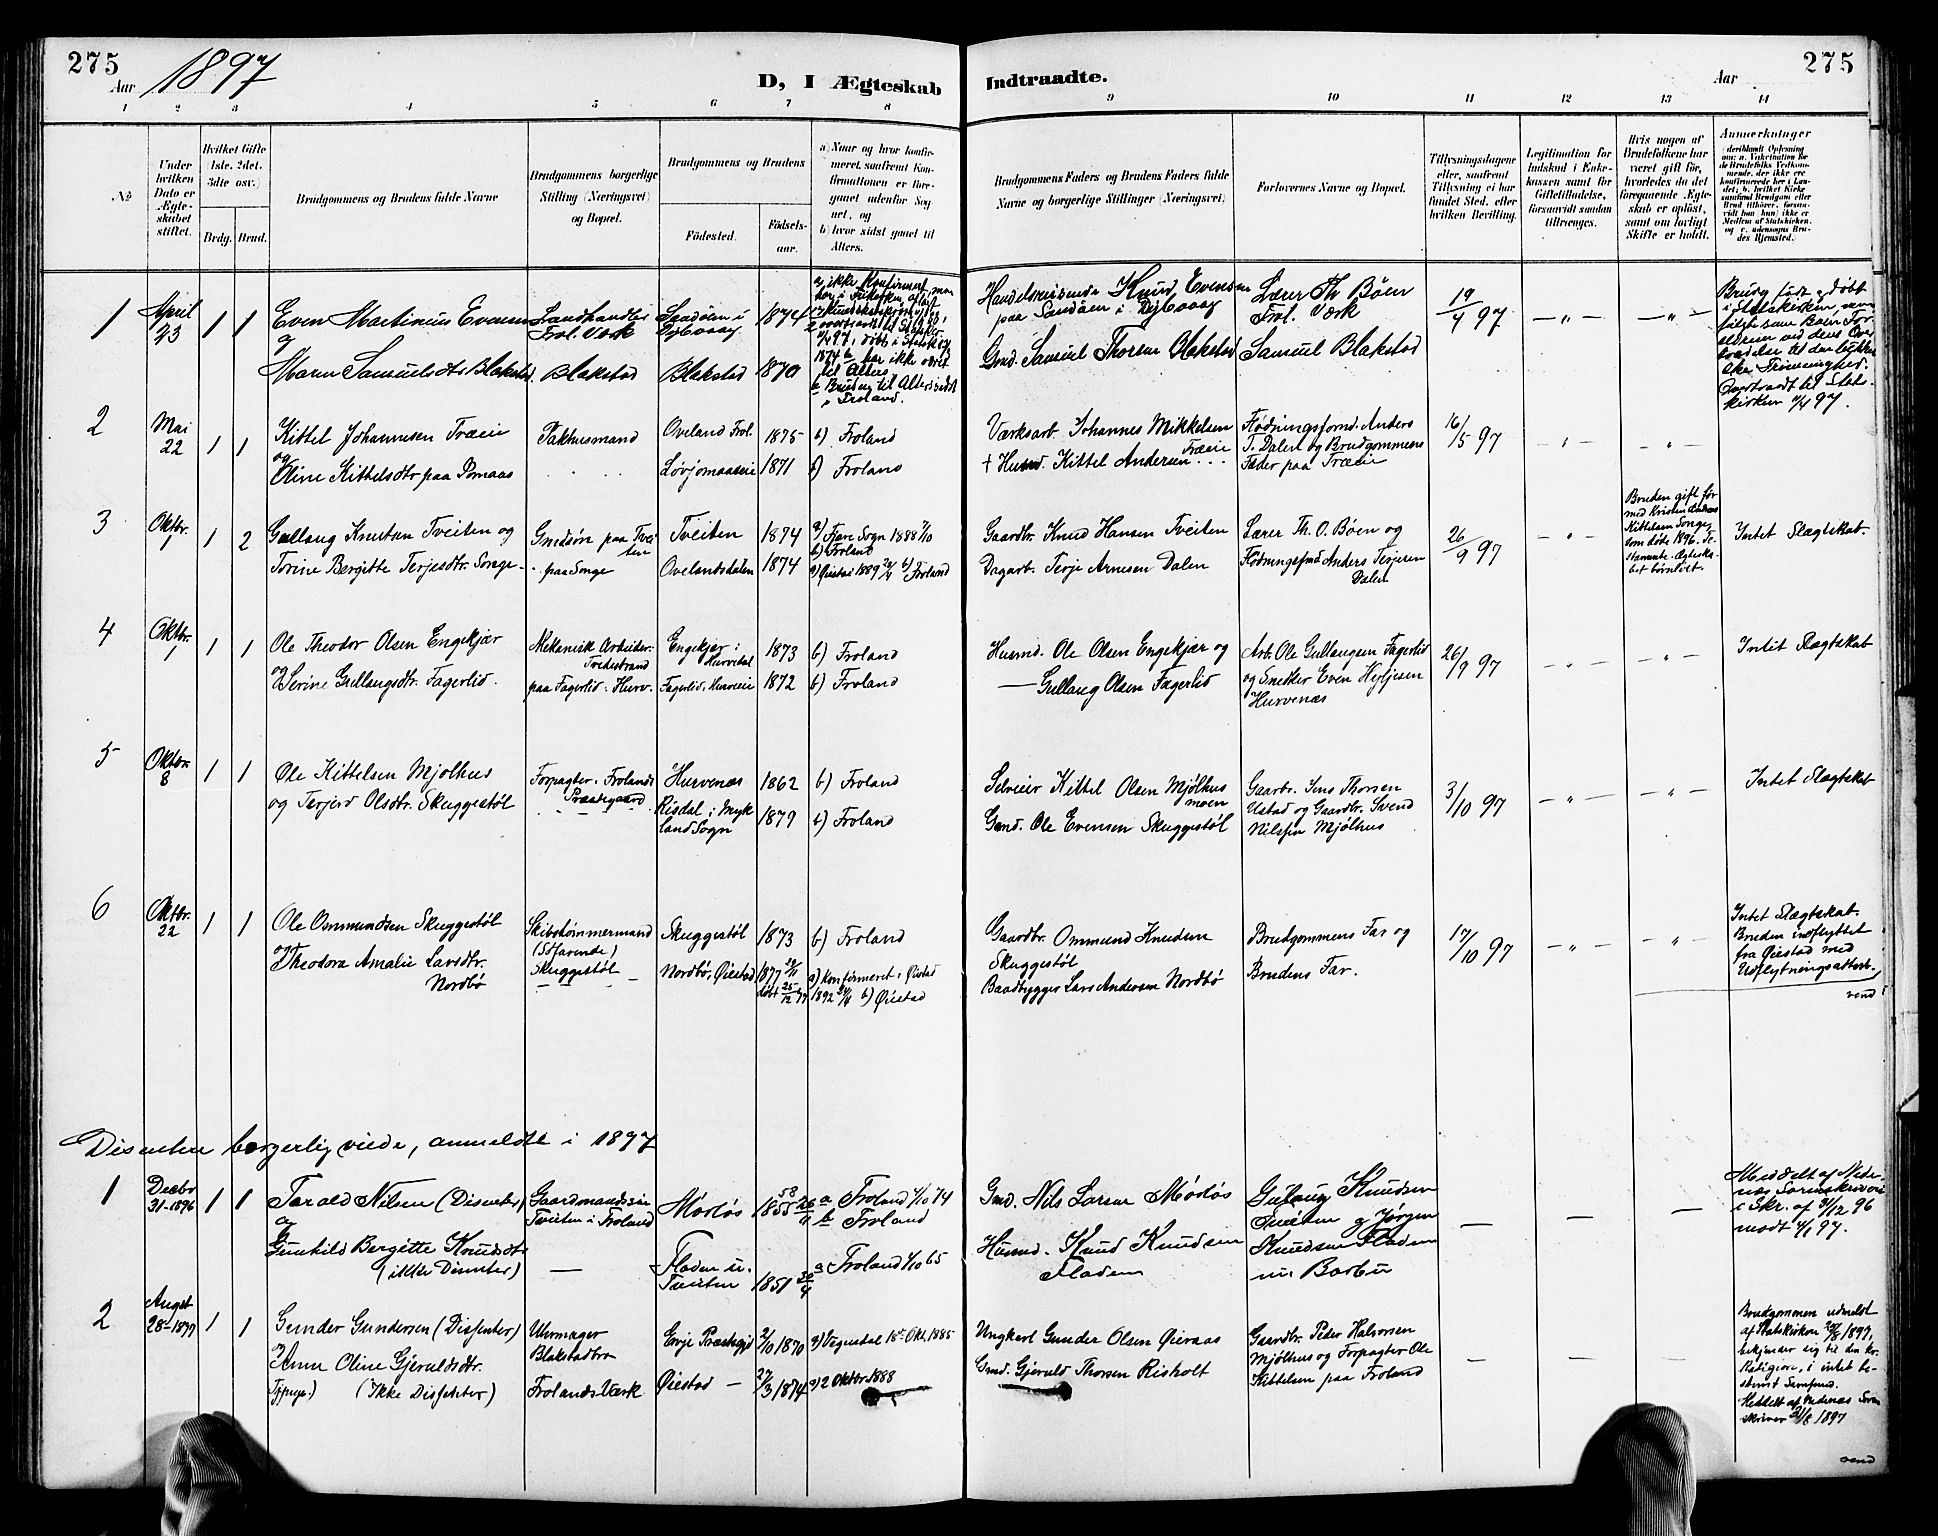 275
Aar 1897
D, I Ægteskab
Indtraadte.
Aar
275
1 2 3 4 5 6 7 8 9 10 11 12 13 14
No
Under hvilken Dato er Ægteskabet stiftet.
Hvilket Gifte (1ste. 2det. 3die osv.)
Brdg. Brud.
Brudgommens og Brudens fulde Navne
Brudgommens borgerlige Stilling (Næringsvei) og Bopæl.
Brudgommens og Brudens
Fødested.
Fødselsaar.
a) Naar og hvor konfirmeret, saafremt Konfirmationen er foregaaet udenfor Sognet, og
b) hvor sidst gaaet til Alters.
Brudgommens Faders og Brudens Faders fulde Navne og borgerlige Stillinger (Næringsvei)
Forlovernes Navne og Bopæl.
Tillysningsdagene eller, saafremt Tillysning ei har fundet Sted, efter hvilken Bevilling.
Legitimation for Indskud i Enkekassen samt for Giftetilladelse, forsaavidt saadan tiltrænges.
Hvis nogen af Brudefolkene har været gift før, hvorledes da det foregaaende Ægteskab er opløst, samt om lovligt Skifte er holdt.
Anmerkninger
1 April 23 1 1
Even Martinius Evensen
og
Maren Samuelsdtr Blakstad
Landhandler
Frol. Værk
Blakstad
Sandøen i
Dybvaag
Blakstad
1874
1870
Handelsreisende Knud Evensen
paa Sandøen i Dybvaag
Gmd. Samuel Thorsen Blakstad
Lærer Th Bøen
Frol. Værk
Samuel Blakstad
19/4 97
— „ —
— „ —
kirken 11/4 97.
2 Mai 22 1 1
Kittel Johannesen Træen
og
Oline Kittelsdtr paa Romaas
Pakhusmand
Oveland Frol.
Løvjomaaseie
1875
1871
b) Froland
b) Froland
Værksarb. Johannes Mikkelsen
Træen
† Husmd. Kittel Andersen
Flødningsformd. Anders
T. Dalen og Brudgommens
Fader paa Træen
16/5 97
3 Oktbr. 1 1 2
Gullaug Knutsen Tveiten og
Torine Bergitte Terjesdtr. Songe
Gmdsøn paa Tveiten
paa Songe
Tveiten
Ovelandsdalen
1874
1874
a) Fjære Sogn 1888 7/10
b) Froland
a) Øiestad 1889 b) Froland
Gaardbr. Knud Hansen Tveiten
Dagarb. Terje Arnesen Dalen
Lærer Th. O. Bøen og
Flødningsfmd Anders Terjesen
Dalen
26/9 97
— „ —
Bruden gift før
med Kristen Andreas
Kittelsen Songe
som døde 1896. Testamente. Ægteskabet børnløst.
Intet Slægtskab.
4 Oktbr. 1 1 1
Ole Theodor Olsen Engekjær
og Serine Gullaugsdtr. Fagerlid.
Mekanisk Arbeider
Tvedestrand
paa Fagerlid. Hurv.
Engekjær i
Hurvedal
Fagerlid, Hurveeie
1873
1872
b) Froland
b) Froland
Husmd. Ole Olsen Engekjær og
— Gullaug Olsen Fagerlid
Arb. Ole Gullaugsen Fagerlid
og Snedker Even Hyljesen
Hurvenæs
26/9 97
— „ —
— „ —
Intet Slægtskab
5 Oktbr. 8 1 1
Ole Kittelsen Mjølhus
og Terjerd Olsdtr. Skuggestøl
Forpagter, Frolands
Præstegaard
Hurvenæs
Risdal i Mykland Sogn
1862
1879
b) Froland
b) Froland
Selveier Kittel Olsen Mjølhus
moen
Gmd. Ole Evensen Skuggestøl
Gaarbr. Jens Thorsen
Ustad og Gaardbr. Svend
Nilssen Mjølhus
3/10 97
— „ —
— „ —
Intet Slægtskab
6 Oktbr. 22 1 1
Ole Ommundsen Skuggestøl
og
Theodora Amalie Larsdtr.
Nordbø
Skibstømmermand
(Søfarende)
Skuggestøl
Skuggestøl
Nordbø, Øiestad
1873
1877
døbt 25/12 77
b) Froland
a) Konfirmeret i Øiestad
1892 b) Øiestad
Gaardbr. Ommund Knudsen
Skuggestøl
Baadbygger Lars Andersen Nordbø
Brudgommens Far og
Brudens Far.
17/10 97
— „ —
— „ —
Intet Slægtskab.
Bruden indflyttet
fra Øiestad med
Udflytningsattest.
vend
Disentere borgerlig viede, anmeldte i 1897
1 Decbr 31-1896 1 1
Tarald Nilsen (Disenter)
og
Gunhild Bergitte Knudsdtr
(ikke Disenter)
Gaardmandssøn
Tveiten i Froland
—
Mørløs
Fladen u.
Tveiten
1858
1851 30/4
a Froland 4/10 74
b Froland
a Froland 1/10 65
Gmd. Nils Larsen Mørløs
Husmd. Knud Knudsen
Fladen
Gullaug Knudsen
Tveiten og Jørgen
Knudsen Fladen
Meddelt af Nedenæs Sorenskriveri
i Skr. af 31/12 96
modt 4/1 97.
2 Augst 28-1897 1 1
Gunder Gundersen (Dissenter)
og
Anne Oline Gjeruldsdtr.
(Ikke Dissenter)
Uhrmager
Blakstadbro
Frolands Værk
Evje Præstegjd
Øiestad —
2/10 1870
27/3 1874
a) Vegusdal 18de Okt. 1885
a) 2 Oktbr 1888
Ungkarl Gunder Olsen Øieraas
Gmd. Gjeruld Thorsen Risholt
Gaardbr. Peder Halvorsen
Mjølhus og Forpagter Ole
Kittelsen paa Froland
Brudgommen udmeldt
af Statskirken 20/8 1897,
bekjender sig til den kr.
Religion, i intet bestemt Samfund.
Meddelt af Nedenæs Sorenskriver 31/8 1897
vend